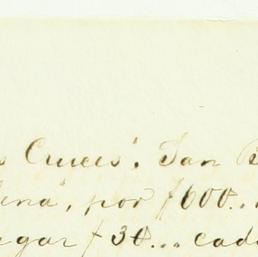 s Cruces". San B
lena", por $600...
egar $30... cad